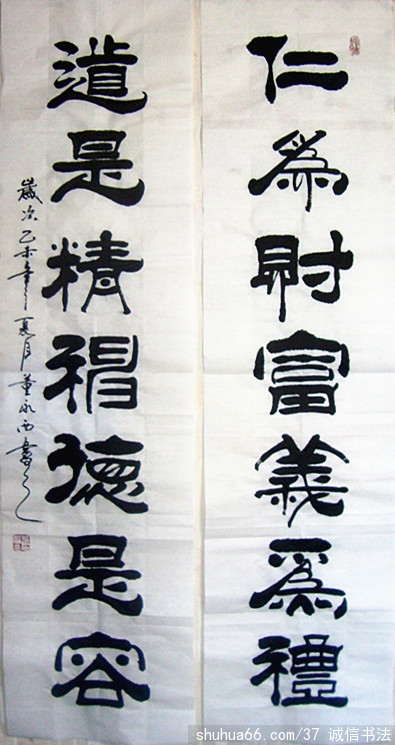 仁為財富義爲禮
道是精神德是容
歲次乙未年夏月董永西書之
shuhua66.com/37 诚信书法